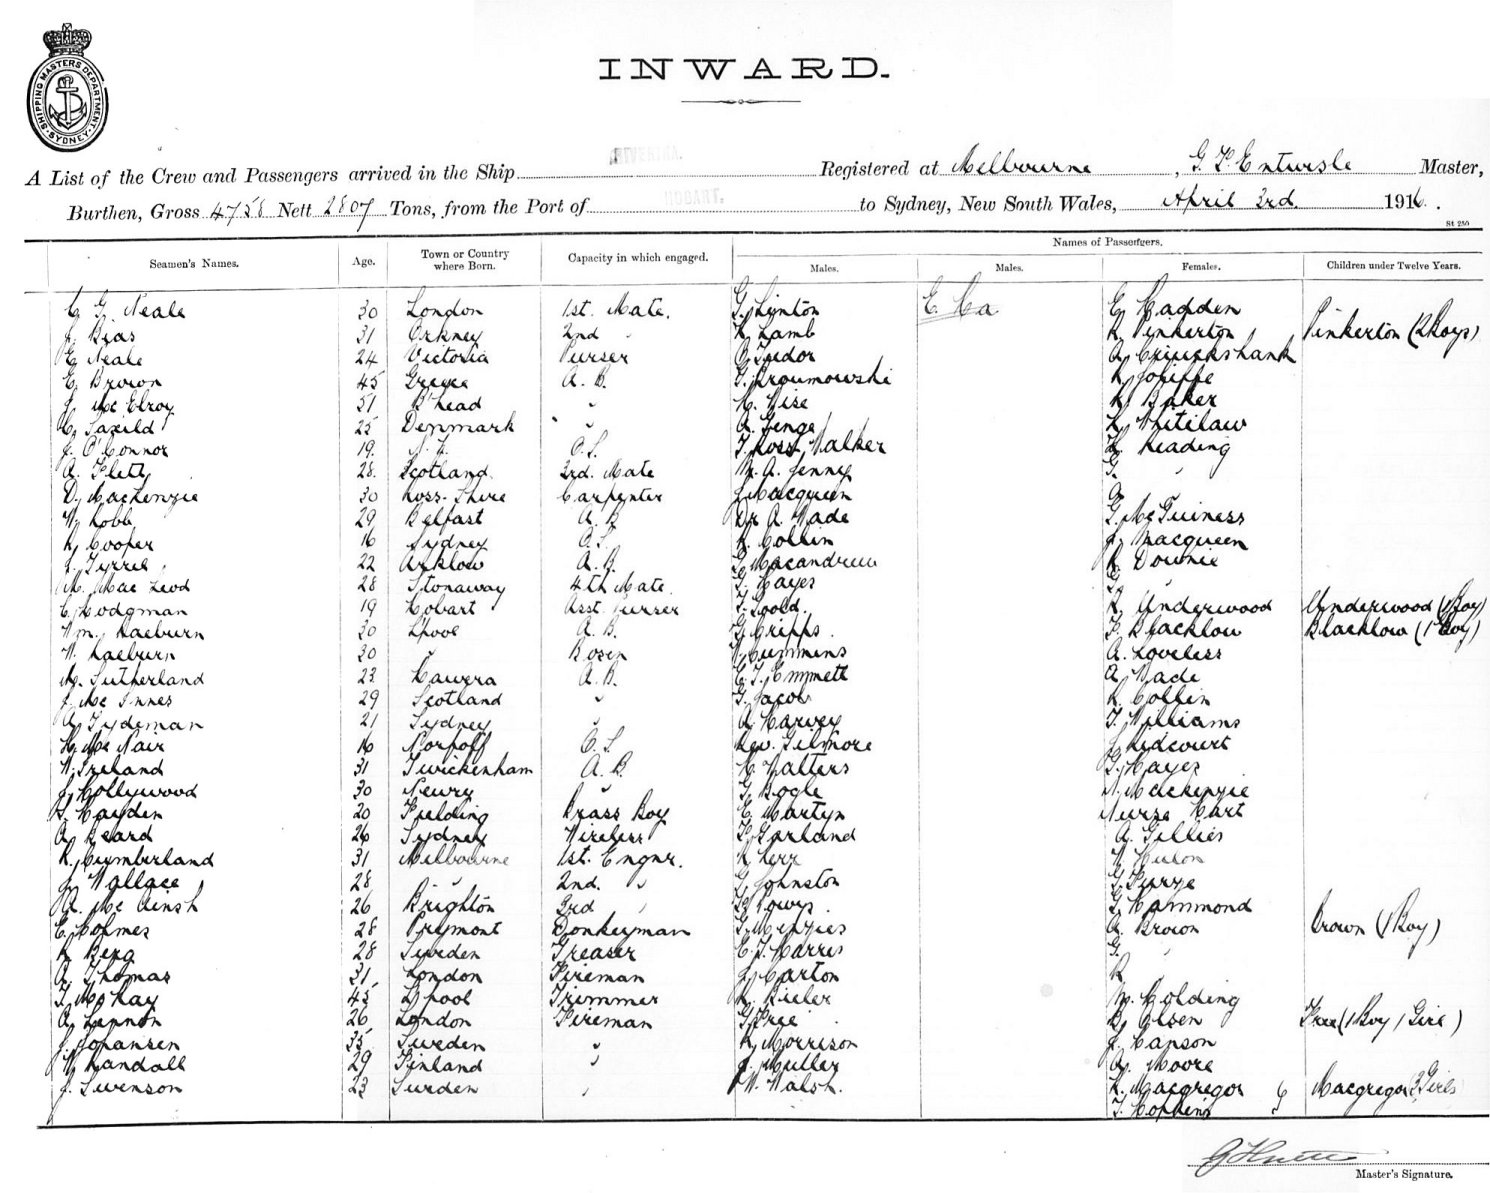 SHIPPING MASTERS DEPARTMENT. SYDNEY
INWARD.
A List of the Crew and Passengers arrived in the Ship RIVERINA. Registered at Melbourne, Entwisle Master,
Burthen, Gross 4758 Nett 2807 Tons, from the Port of HOBART. to Sydney, New South Wales, April 3rd. 1916.
St 250
Seamen's Names. Age. Town or Country where Born. Capacity in which engaged. Names of Passengers.
Males. Males. Females. Children under Twelve Years.
C. G. Neale 30 London 1st. Mate. G. Linton E. Ha E. Hadden
J. Bias 31 Orkney 2nd " K. Lamb R. Pinkerton Pinkerton (2 Boys)
E. Neale 24 Victoria Purser Tudor A. Cruickshank
E. Brown 45 Greece A. B. G. Kroumowski R. Joliffe
J. Mc Elroy 51 B'head " H. Wise Baker
C. Saxild 25 Denmark " A. Genge Whitelaw
J. O'Connor 19. N. Z. O.S. T. Ross Walker Reading
A. Flett 28. Scotland. 3rd. Mate M. A. Jenny G. "
D. Mackenzie 30 Ross-Shire Carpenter J. Macqueen A.
W. Robb 29 Belfast A. B. Dr A. Wade G. McGuiness
R. Cooper 16 Sydney O.S. R. Collin J. Macqueen
J. Tyrrel 22 Arklow A. B. G. Macandrew R. Downie
M. Mac Leod 28 Stonaway 4th Mate. G. Hayes
C. Hodgman 19 Hobart Asst. Purser T. Loold. R. Underwood Underwood (1 Boy)
Wm. Raeburn 30 L'pool A. B. G. Cripps. F. Blacklow Blacklow (1 Boy)
W. Raeburn 30 " Bosen W. Cummins A. Loveless
M. Sutherland 23 Hawera A. B. C. T. Emmett A. Wade
J. Mc Innes 29 Scotland " G. Jacob R. Collin
A. Tydeman 21 Sydney " A. Harvey T. Williams
H. Mc Nair 16 Norfolk O. S. Rev. Gilmore J. Ridcourt
W. Ireland 31 Twickenham A. B. H. Walters G. Hayes
J. Hollywood 30 Newry " G. Bogle N. Mackenzie
Hayden 20 Fielding Brass Boy E. Martyn Nurse Hart
A. Beard 26 Sydney Wireless F. Garland A. Gillies
R. Cumberland 31 Melbourne 1st. Engnr. R. Kerr
J. Wallace 28 " 2nd. " G. Johnston
R. Mc Ainsh 26 Brighton 3rd " Powys. G. Hammond
C. Holmes 28 Pyrmont Donkeyman G. Menzies A. Brown Brown (1 Boy)
R. Berg 28 Sweden Greaser C. J. Harris G. "
A. Thomas 31 London Fireman J. Carton R.
T. McKay 45 L'pool Trimmer R. Bieler M. Holding
A. Lennon 26 London Fireman G. Free B. Olsen Free (1 Boy 1 Girl)
J. Johansen 35 Sweden " R. Morrison J. Hanson
W. Randall 29 Finland " J. Muller A. Moore
J. Swenson 23 Sweden " W. Walsh. R. Macgregor Macgregor (3 Girls)
T. Hopkins
Master's Signature.